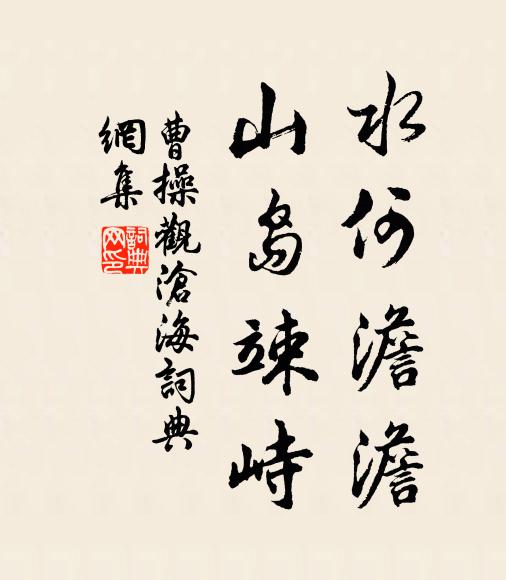 水何澹澹
山岛竦峙
曹操觀滄海詞典
網集
詞典
网印